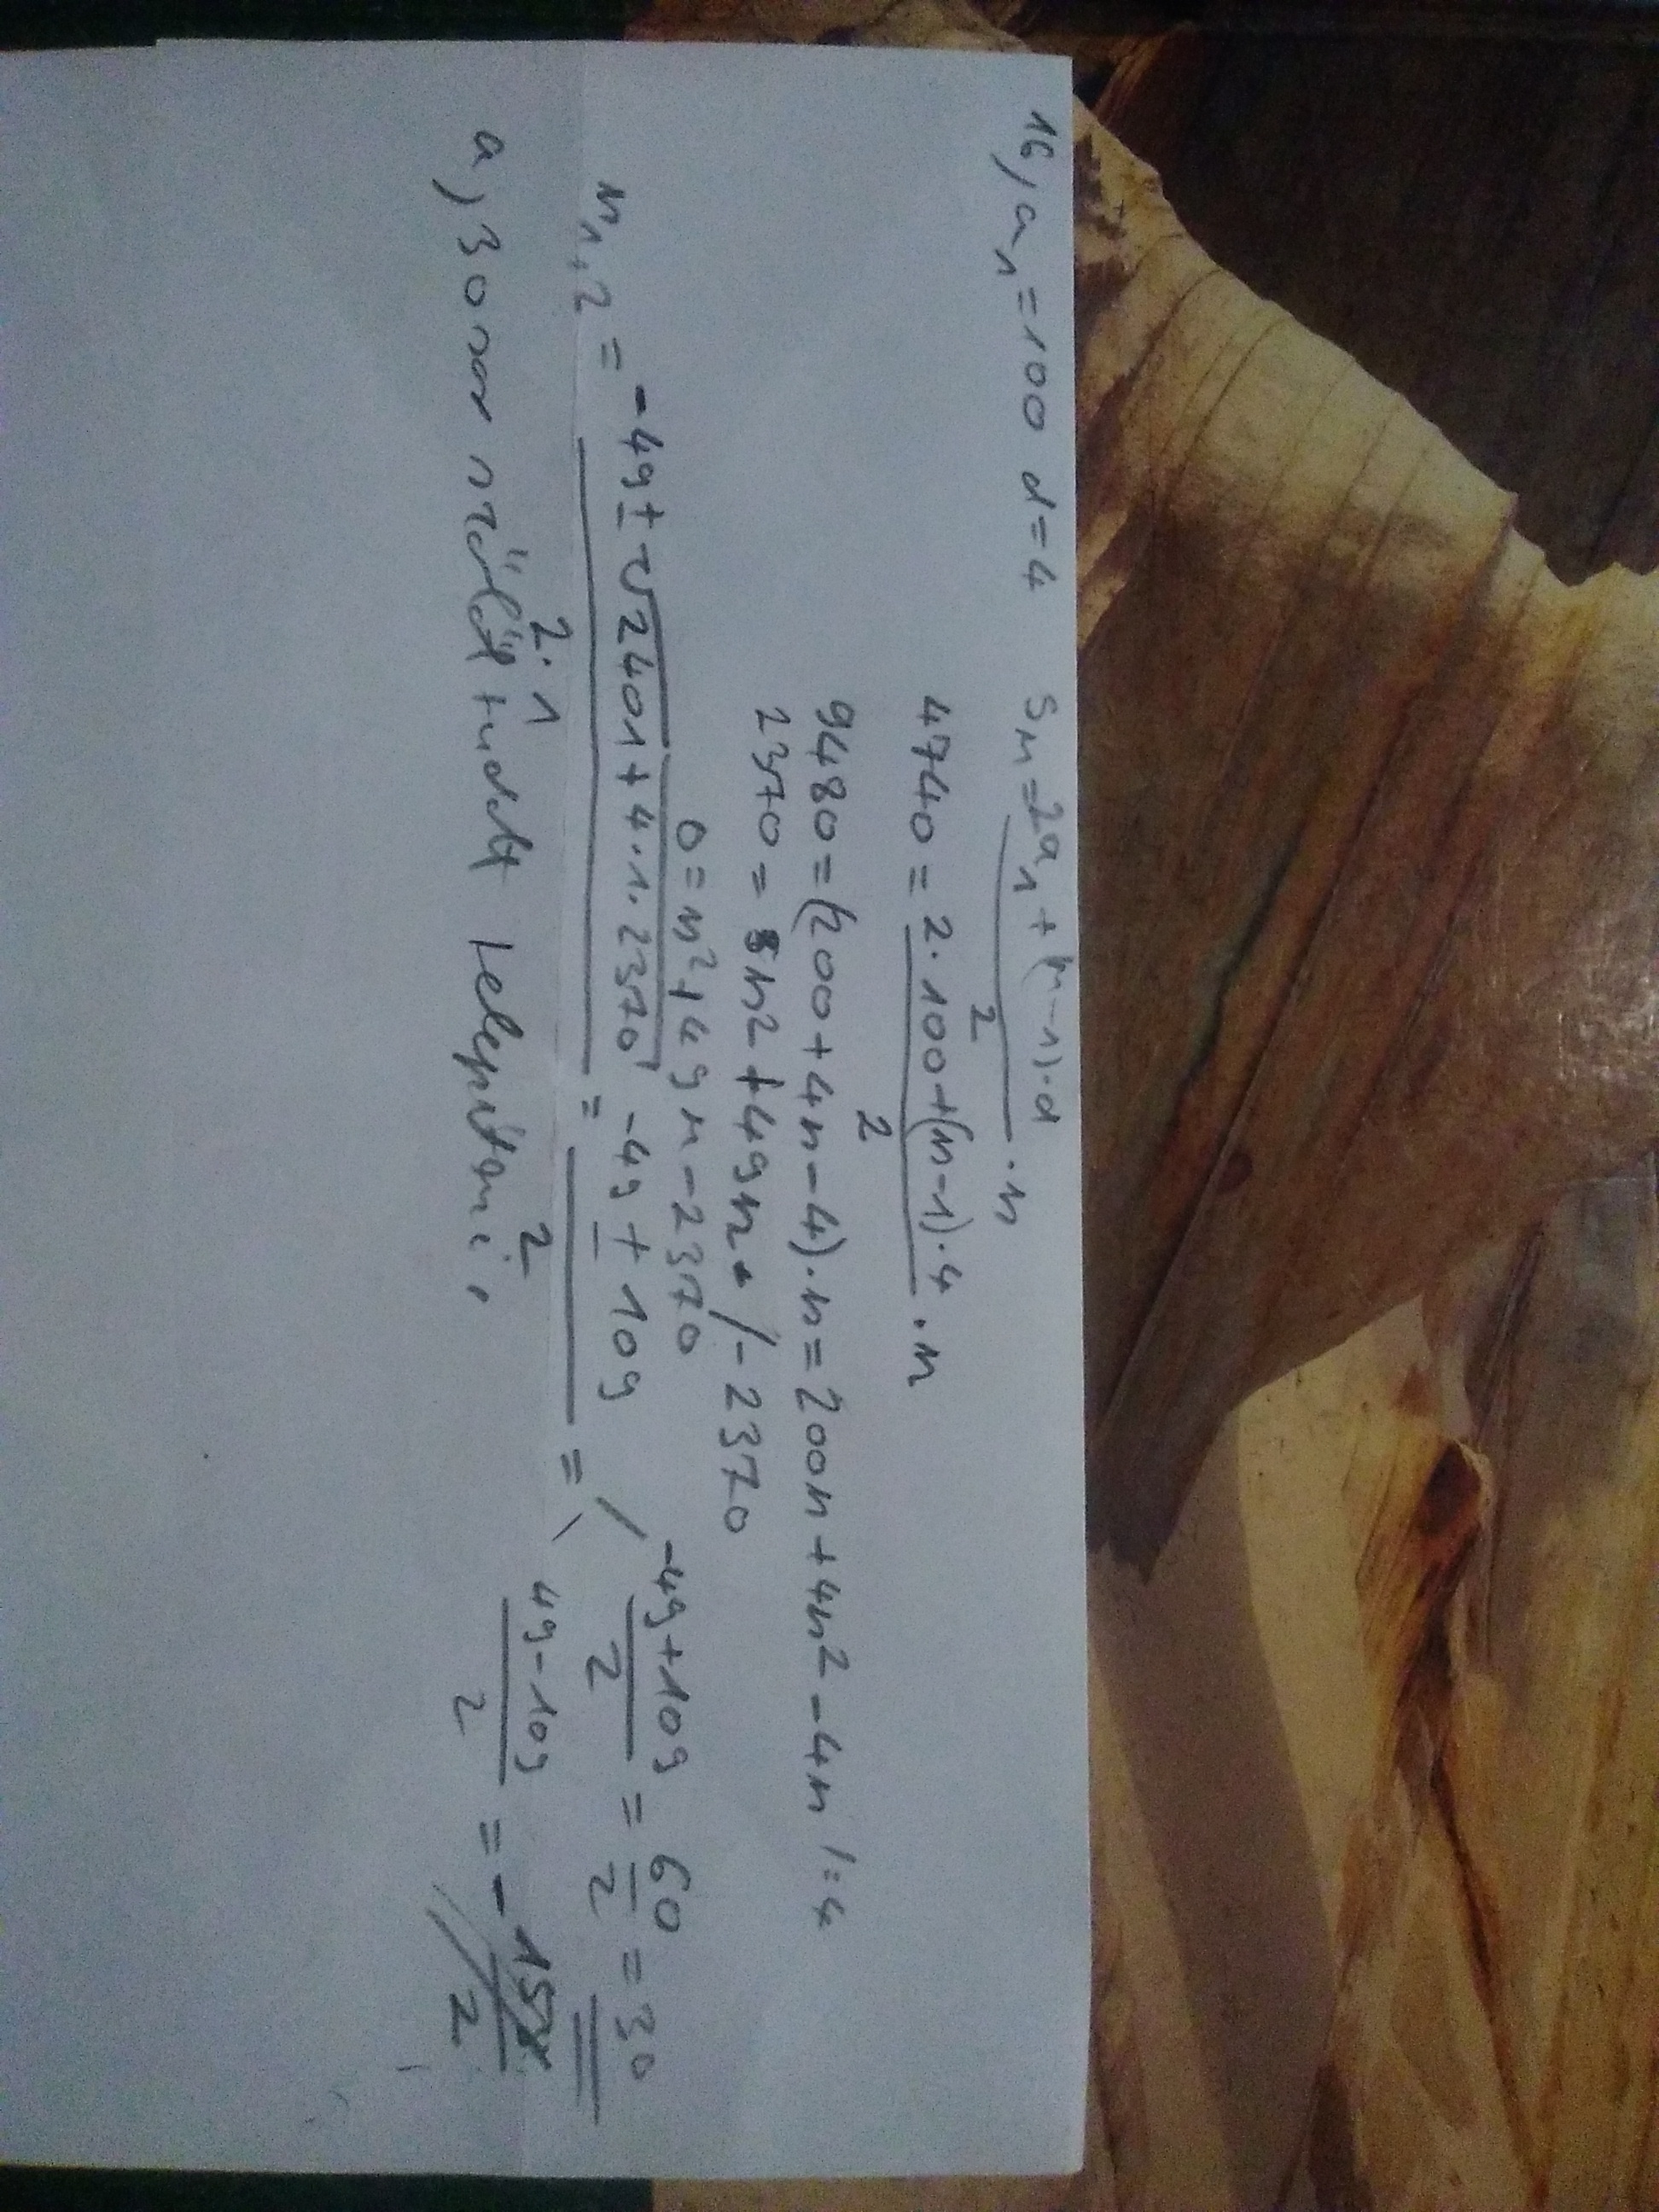 16, a₁=100 d=4 Sₙ=(2a₁+(n-1)·d)/2·n
4740=(2·100+(n-1)·4)/2·n
9480=(200+4n-4)·n=200n+4n²-4n /:4
2370=n²+49n /-2370
0=n²+49n-2370
n₁,₂=(-49±√2401+4·1·2370)/(2·1)=(-49±109)/2= (-49+109)/2=60/2=30
49-109/2=-158/2
a, 30 sor szőlőt tudott telepíteni.